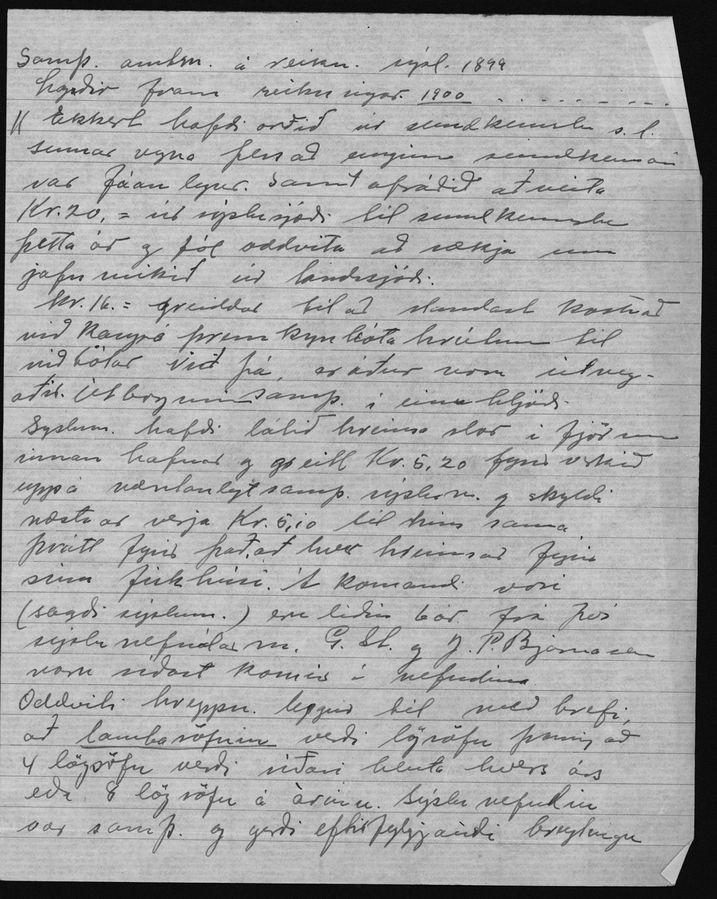 Samþ. amtsn. á reikn. sýsl. 1899
lagðir fram reikningar 1900 . . . . . . . .
Ekkert hafði orðið úr sundkenslu s.l.
sumar vegna þess að enginn sundkennari
var fáanlegur. Samt afráðið að veita
Kr. 20,= úr sýslusjóði til sundkenslu
þetta ár og fól oddvita að sækja um
jafn mikið úr landssjóði.
Kr. 16.= greiddar til að standast kostnað
við kaup á þrem kynbóta hrútum til
viðbótar við þá, er áður voru útveg-
aðir. Útborgunin samp. í einu hljóði.
Sýslum. hafði látið hreinsa slor í fjörunni
innan hafnar og greitt Kr. 5,20 fyrir verkið
uppá væntanlegt samþ. sýslun. og skyldi
næsta ár verja Kr. 5,10 til hins sama
þrátt fyrir það, að hver hreinsar fyrir
sínu fiskhúsi. Á komandi vori
(sagði sýslum.) eru liðin 6 ár frá því
sýslunefndarm. G. St. og J. P. Bjarnason
voru síðast kosnir í nefndina
Oddviti hreppsn. leggur til með brefi,
að lambasöfnin verði lögsöfn þannig að
4 lögsöfn verði síðari hluta hvers árs
eða 8 lögsöfn á árinu. Sýslunefndin
var samþ. og gerði eftirfylgjandi breytingu